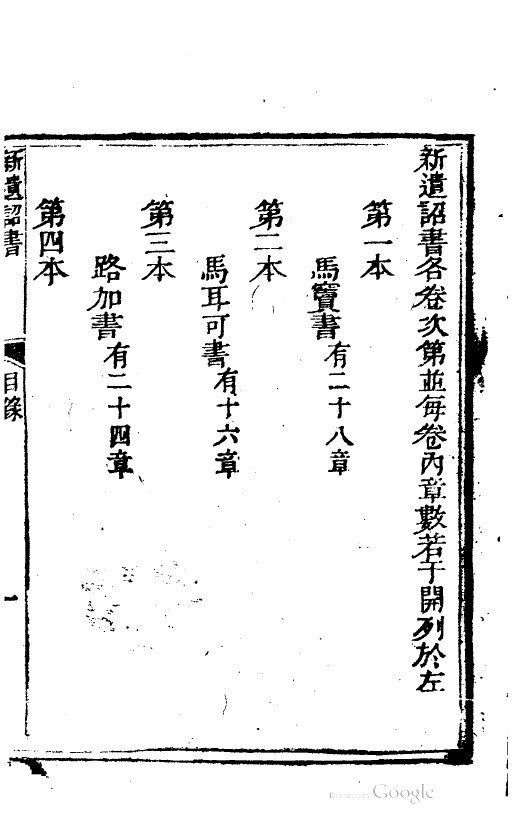 新遺詔書各卷次第並每卷內章數若干開列於左
第一本
馬竇書有二十八章
第二本
馬耳可書有十六章
第三本
路加書有二十四章
第四本
新遺詔書 目錄 一
Digitized by Google